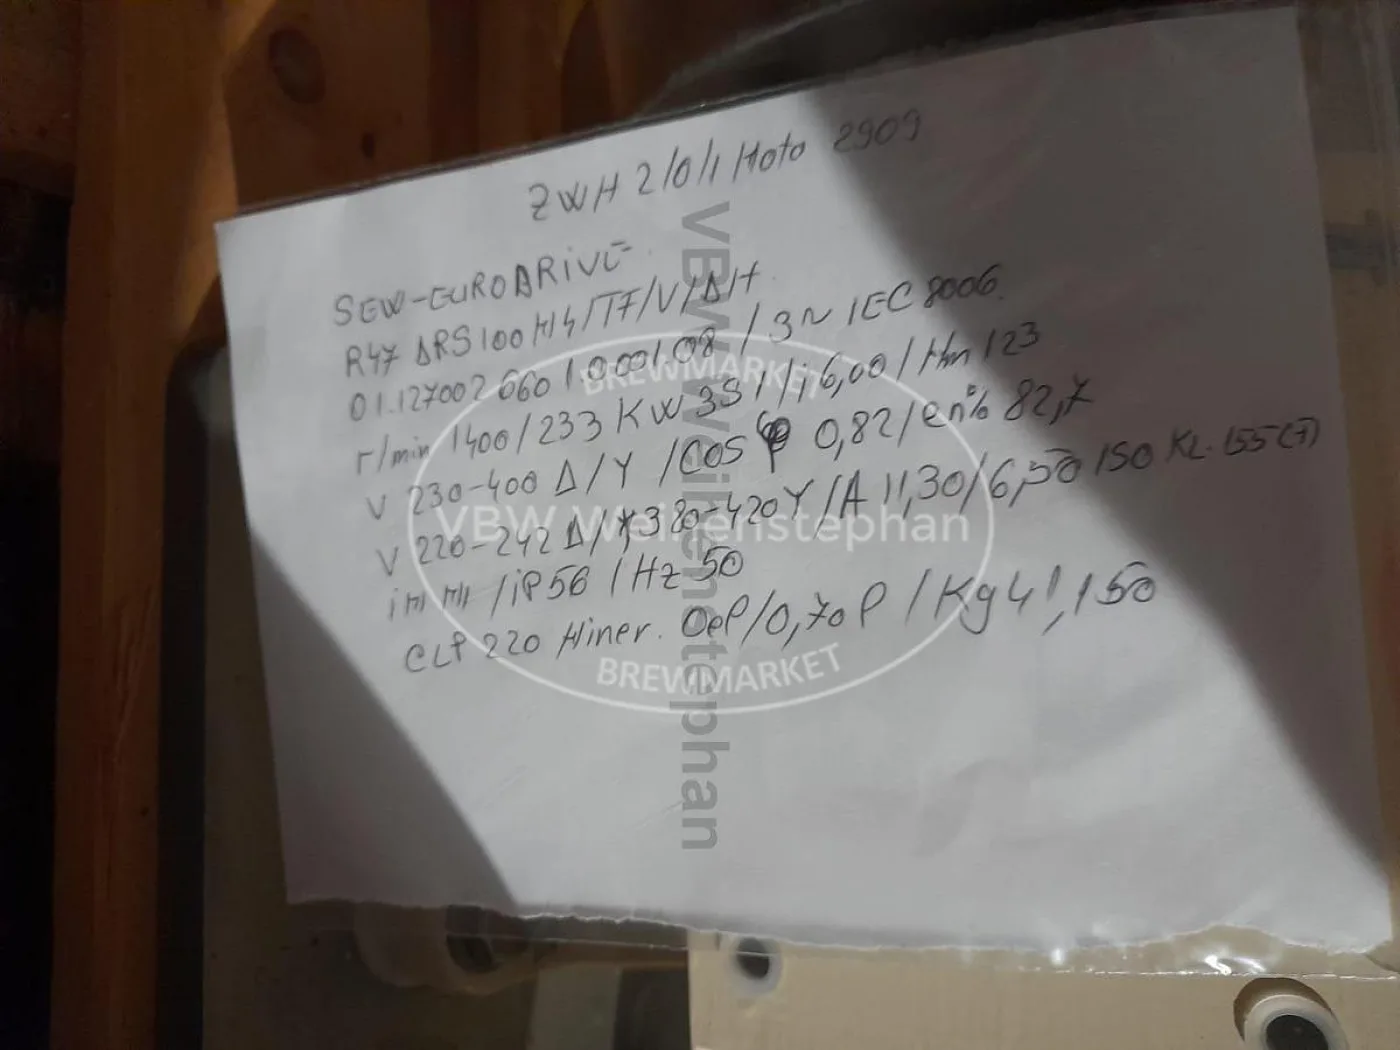 ZWH 2/0/1 Moto 2909
SEW-EURODRIVE
R47 DRS100M4/TF/V/DH
01.127002 660 1.0001.08 / 3~ IEC 8006
r/min 1400/233 KW 3S1/i 6,00/Mm 123
V 230-400 Δ/Y /COS φ 0,82/en% 82,7
V 220-242 Δ/Y 380-420Y/A 11,30/6,50 ISO KL. 155(F)
IM M1/iP 56/Hz 50
CLP 220 Miner. Oel/0,70l/Kg 41,150
BREWMARKET
VBW Weihenstephan
BREWMARKET
VBW Weihenstephan